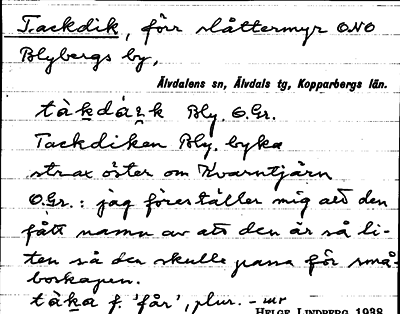 Tackdik, förr slåttermyr ONO
Blybergs by,
Älvdalens sn, Älvdals tg, Kopparbergs län.
tàkdá̱ı̨k Bly. O.Gr.
Tackdiken Bly. byka
strax öster om Kvarntjärn
O.Gr.: jag föreställer mig att den
fått namn av att den är så li-
ten så den skulle passa för små-
boskapen.
tàka f. 'får', plur. - ur
HELGE LINDBERG 1938